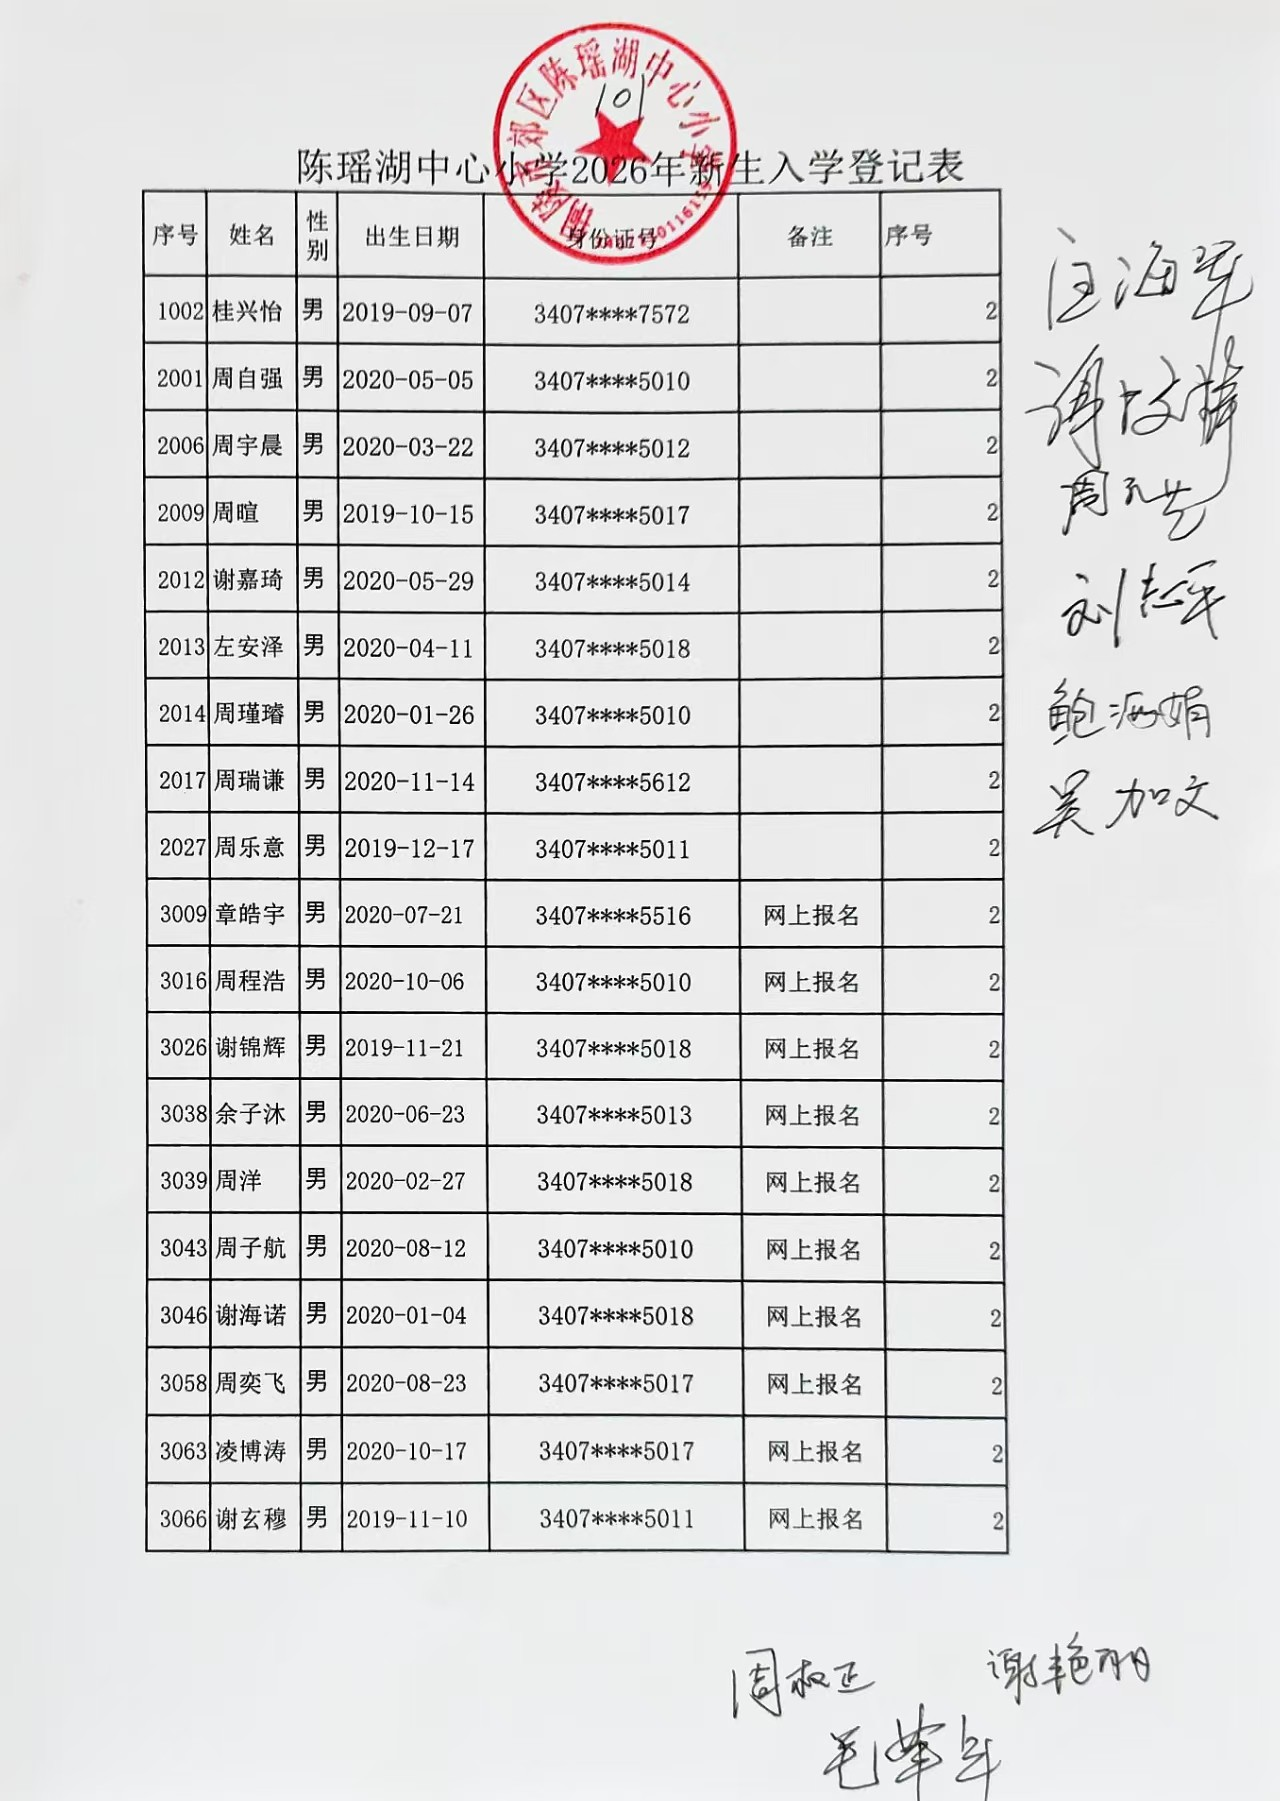 陈瑶湖中心小学
101
陈瑶湖中心小学2026年新生入学登记表
序号 姓名 性别 出生日期 身份证号 备注 序号
1002 桂兴怡 男 2019-09-07 3407****7572 2
2001 周自强 男 2020-05-05 3407****5010 2
2006 周宇晨 男 2020-03-22 3407****5012 2
2009 周暄 男 2019-10-15 3407****5017 2
2012 谢嘉琦 男 2020-05-29 3407****5014 2
2013 左安泽 男 2020-04-11 3407****5018 2
2014 周瑾璿 男 2020-01-26 3407****5010 2
2017 周瑞谦 男 2020-11-14 3407****5612 2
2027 周乐意 男 2019-12-17 3407****5011 2
3009 章皓宇 男 2020-07-21 3407****5516 网上报名 2
3016 周程浩 男 2020-10-06 3407****5010 网上报名 2
3026 谢锦辉 男 2019-11-21 3407****5018 网上报名 2
3038 余子沐 男 2020-06-23 3407****5013 网上报名 2
3039 周洋 男 2020-02-27 3407****5018 网上报名 2
3043 周子航 男 2020-08-12 3407****5010 网上报名 2
3046 谢海诺 男 2020-01-04 3407****5018 网上报名 2
3058 周奕飞 男 2020-08-23 3407****5017 网上报名 2
3063 凌博涛 男 2020-10-17 3407****5017 网上报名 2
3066 谢玄穆 男 2019-11-10 3407****5011 网上报名 2
汪海军
刘志平
鲍海娟
吴加文
谢艳丽